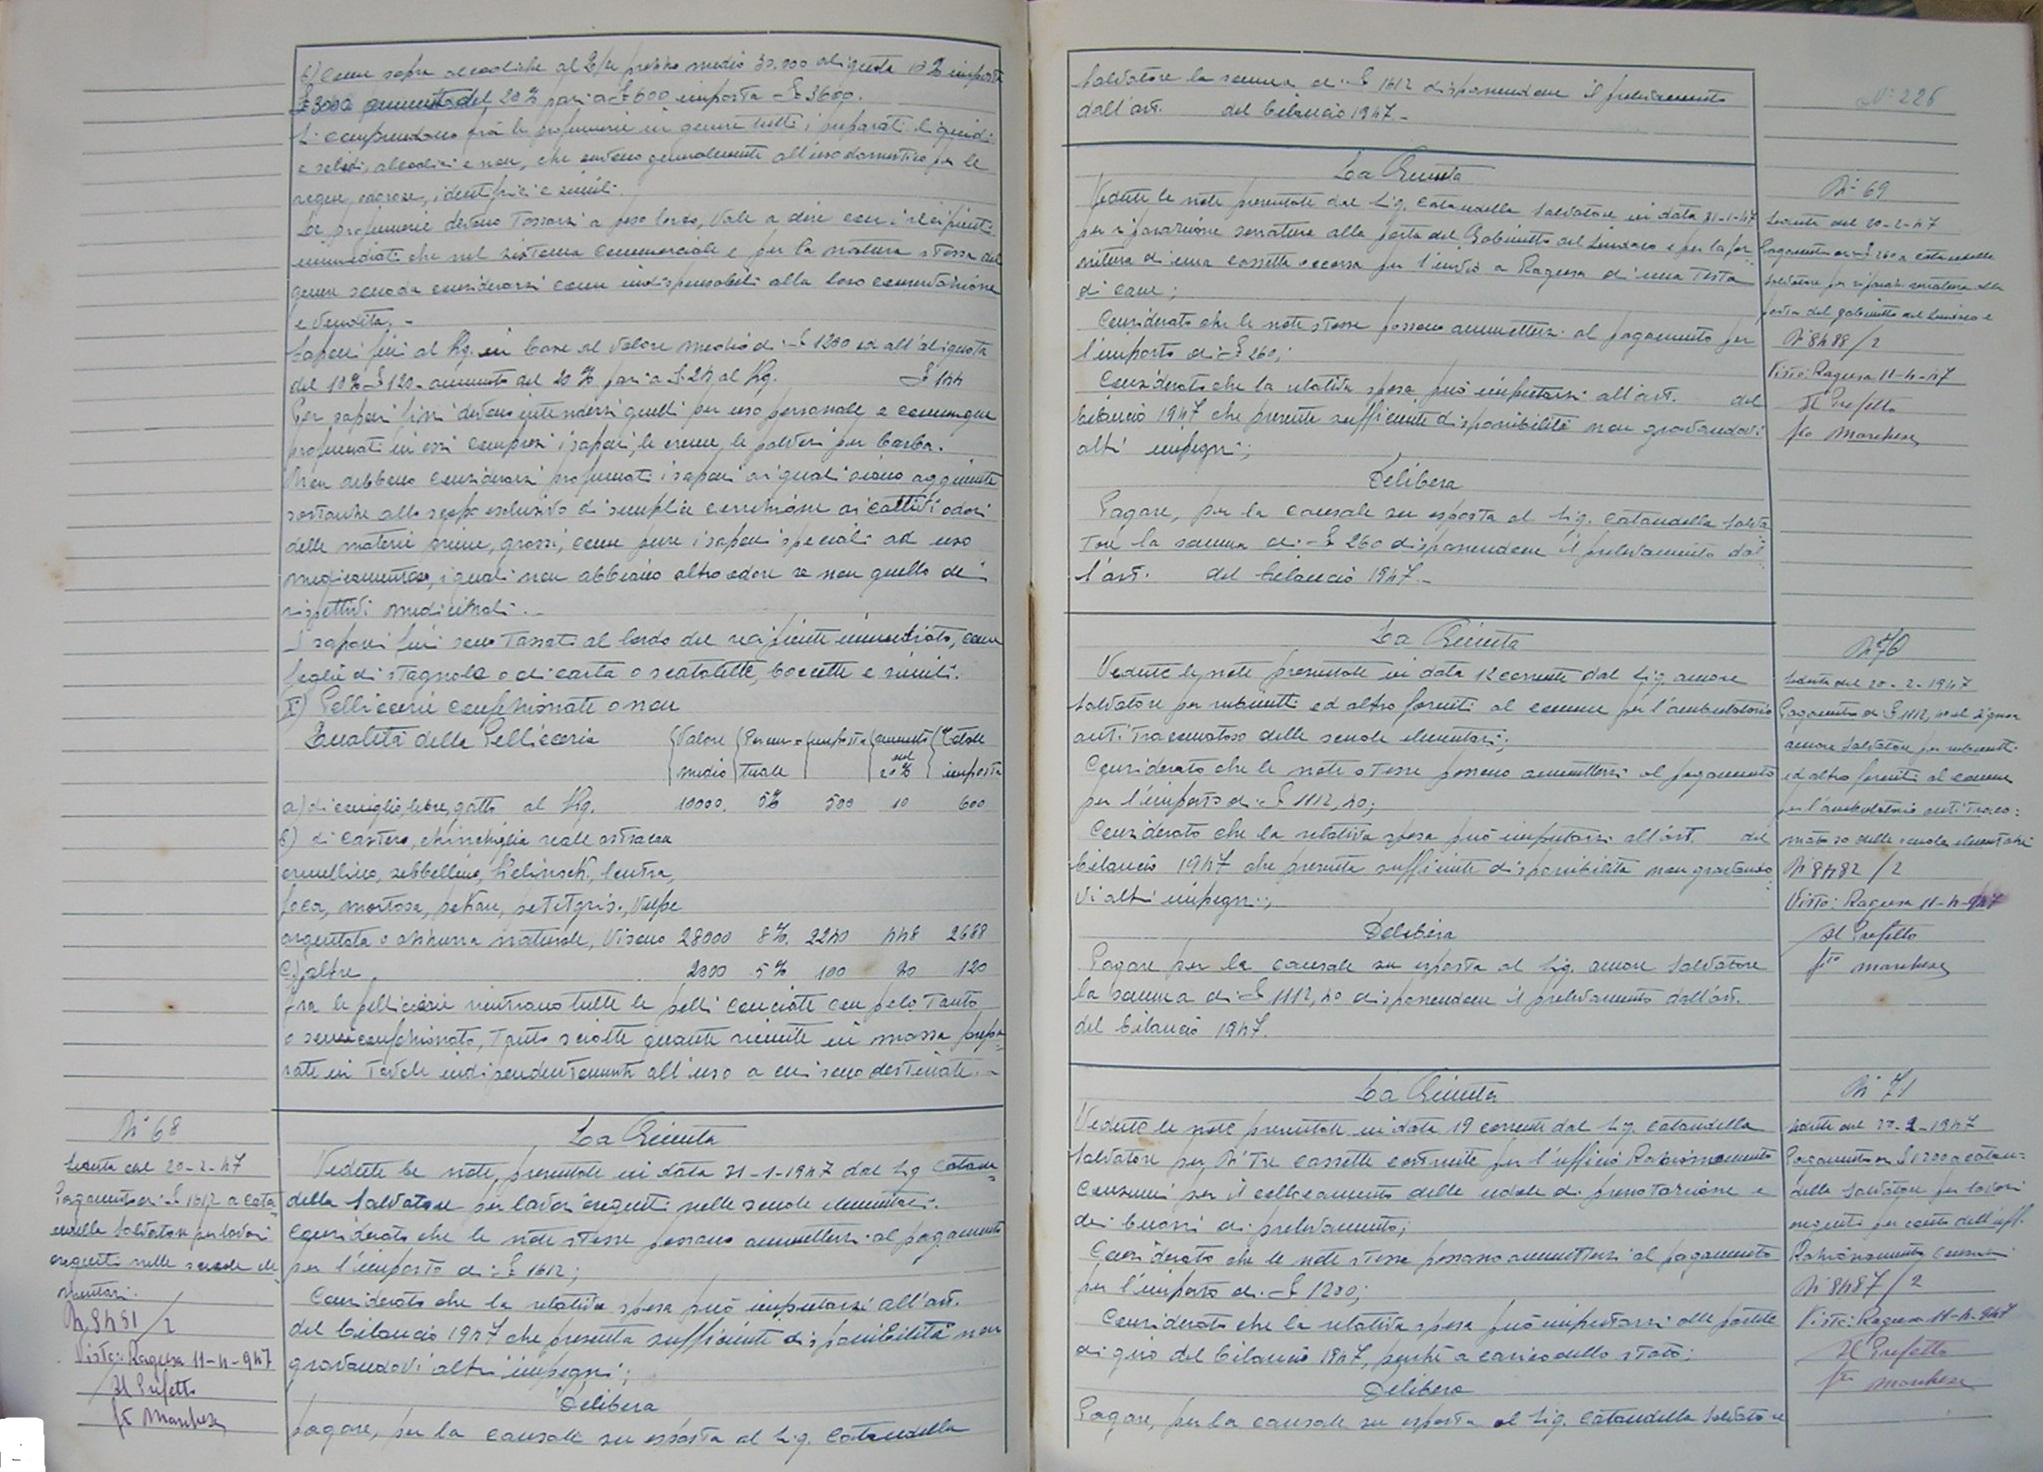 b) Come sopra alcooliche al prezzo medio 30.000 aliquota 10% imposta
£ 3000 aumento del 20% pari a £ 600 imposta £ 3600.
Si comprendono fra le profumerie in genere tutti i preparati liquidi
e solidi, alcoolici e non, che servono generalmente all'uso domestico per le
acque odorose, i dentifrici e simili.
Le profumerie devono tassarsi a peso lordo, vale a dire con i recipienti
immediati che nel sistema commerciale e per la natura stessa del
genere considerarsi come indispensabili alla loro conservazione
e vendita. -
Saponi fini al Kg. in base al valore medio di £ 1200 ed all'aliquota
del 10% £ 120 - aumento del 20% pari a £ 24 al Kg. £ 144
Per saponi fini devono intendersi quelli per uso personale e comunque
profumati in essi compresi i saponi, le creme, le polveri per barba.
Non debbono considerarsi profumati i saponi ai quali siano aggiunte
sostanze allo scopo esclusivo di semplice correzione ai cattivi odori
delle materie prime, grassi, come pure i saponi speciali ad uso
medicamentoso, i quali non abbiano altro odore se non quello dei
rispettivi medicinali. -
I saponi fini sono tassati al lordo del recipiente immediato, come
foglie di stagnola o di carta o scatolette, boccette e simili.
X) Pelliccerie confezionate o non
Qualità della Pellicceria Valore medio Percentuale imposta aumento del 20% Totale imposta
a) di coniglio, lepre, gatto al Kg. 10000. 5% 500 10 600
b) di castoro, chinchiglia reale astracan
ermellino, zebbellino, Kolinsch, lontra,
foca, martora, petit gris, Volpe
argentata o azzurra naturale, Visone 28000 8% 2240 448 2688
c) altre 2000 5% 100 20 120
Fra le pelliccerie rientrano tutte le pelli conciate con pelo tanto
o semiconfezionato, tanto sciolte quante riunite in massa prepa-
rate in tavole indipendentemente all'uso a cui sono destinate. -
N° 68
Seduta del 20-2-47
Pagamento di £ 1612 a Cata-
udella Salvatore per lavori
eseguiti nelle scuole ele-
mentari.
N. 8481/2
Visto: Ragusa 11-4-947
Il Prefetto
fto Marchese
La Giunta
Vedute le note, presentate in data 31-1-1947 dal Sig. Catau-
della Salvatore per lavori eseguiti nelle scuole elementari.
Considerato che le note stesse possono ammettersi al pagamento
per l'importo di £ 1612;
Considerato che la relativa spesa può imputarsi all'art.
del bilancio 1947 che presenta sufficiente disponibilità non
gravandovi altri impegni;
Delibera
pagare, per la causale su esposta al Sig. Cataudella
N° 226
Salvatore la somma di £ 1612 disponendone il prelevamento
dall'art. del bilancio 1947. -
La Giunta
Vedute le note presentate dal Sig. Cataudella Salvatore in data 31-1-47
per riparazione serrature alla porta del Gabinetto del Sindaco e per la for-
nitura di una cassetta occorsa per l'invio a Ragusa di una testa
di cane;
Considerato che le note stesse possono ammettersi al pagamento per
l'importo di £ 260;
Considerato che la relativa spesa può imputarsi all'art. del
bilancio 1947 che presenta sufficiente disponibilità non gravandovi
altri impegni;
Delibera
Pagare, per la causale su esposta al Sig. Cataudella Salva-
tore la somma di £ 260 disponendone il prelevamento dal-
l'art. del bilancio 1947. -
N° 69
Seduta del 20-2-47
Pagamento di £ 260 a Cataudella
Salvatore per riparaz. serratura alla
porta del gabinetto del Sindaco e
N. 8488/2
Visto: Ragusa 11-4-47
Il Prefetto
fto Marchese
La Giunta
Vedute le note presentate in data 12 corrente dal Sig. Amore
Salvatore per ed altro forniti al comune per l'ambulatorio
antitracomatoso delle scuole elementari;
Considerato che le note stesse possono ammettersi al pagamento
per l'importo di £ 1112,40;
Considerato che la relativa spesa può imputarsi all'art. del
bilancio 1947 che presenta sufficiente disponibilità non gravando-
vi altri impegni;
Delibera
Pagare per la causale su esposta al Sig. Amore Salvatore
la somma di £ 1112,40 disponendone il prelevamento dall'art.
del bilancio 1947.
N° 70
Seduta del 20-2-1947
Pagamento di £ 1112,40 al Signor
Amore Salvatore per
ed altro forniti al comune
per l'ambulatorio antitraco-
matoso delle scuole elementari
N. 8482/2
Visto: Ragusa 11-4-947
Il Prefetto
fto Marchese
La Giunta
Vedute le note presentate in data 19 corrente dal Sig. Cataudella
Salvatore per N° Tre cassette costruite per l'ufficio Razionamento
Consumi per il collocamento delle cedole di prenotazione e
dei buoni di prelevamento;
Considerato che le note stesse possano ammettersi al pagamento
per l'importo di £ 1200;
Considerato che la relativa spesa può imputarsi alle partite
di giro del bilancio 1947, perchè a carico dello Stato;
Delibera
Pagare, per la causale su esposta al Sig. Cataudella Salvatore
N° 71
Seduta del 20-2-1947
Pagamento di £ 1200 a Catau-
della Salvatore per lavori
eseguiti per conto dell'uff.
Razionamento Consumi
N. 8487/2
Visto: Ragusa 11-4-947
Il Prefetto
fto Marchese